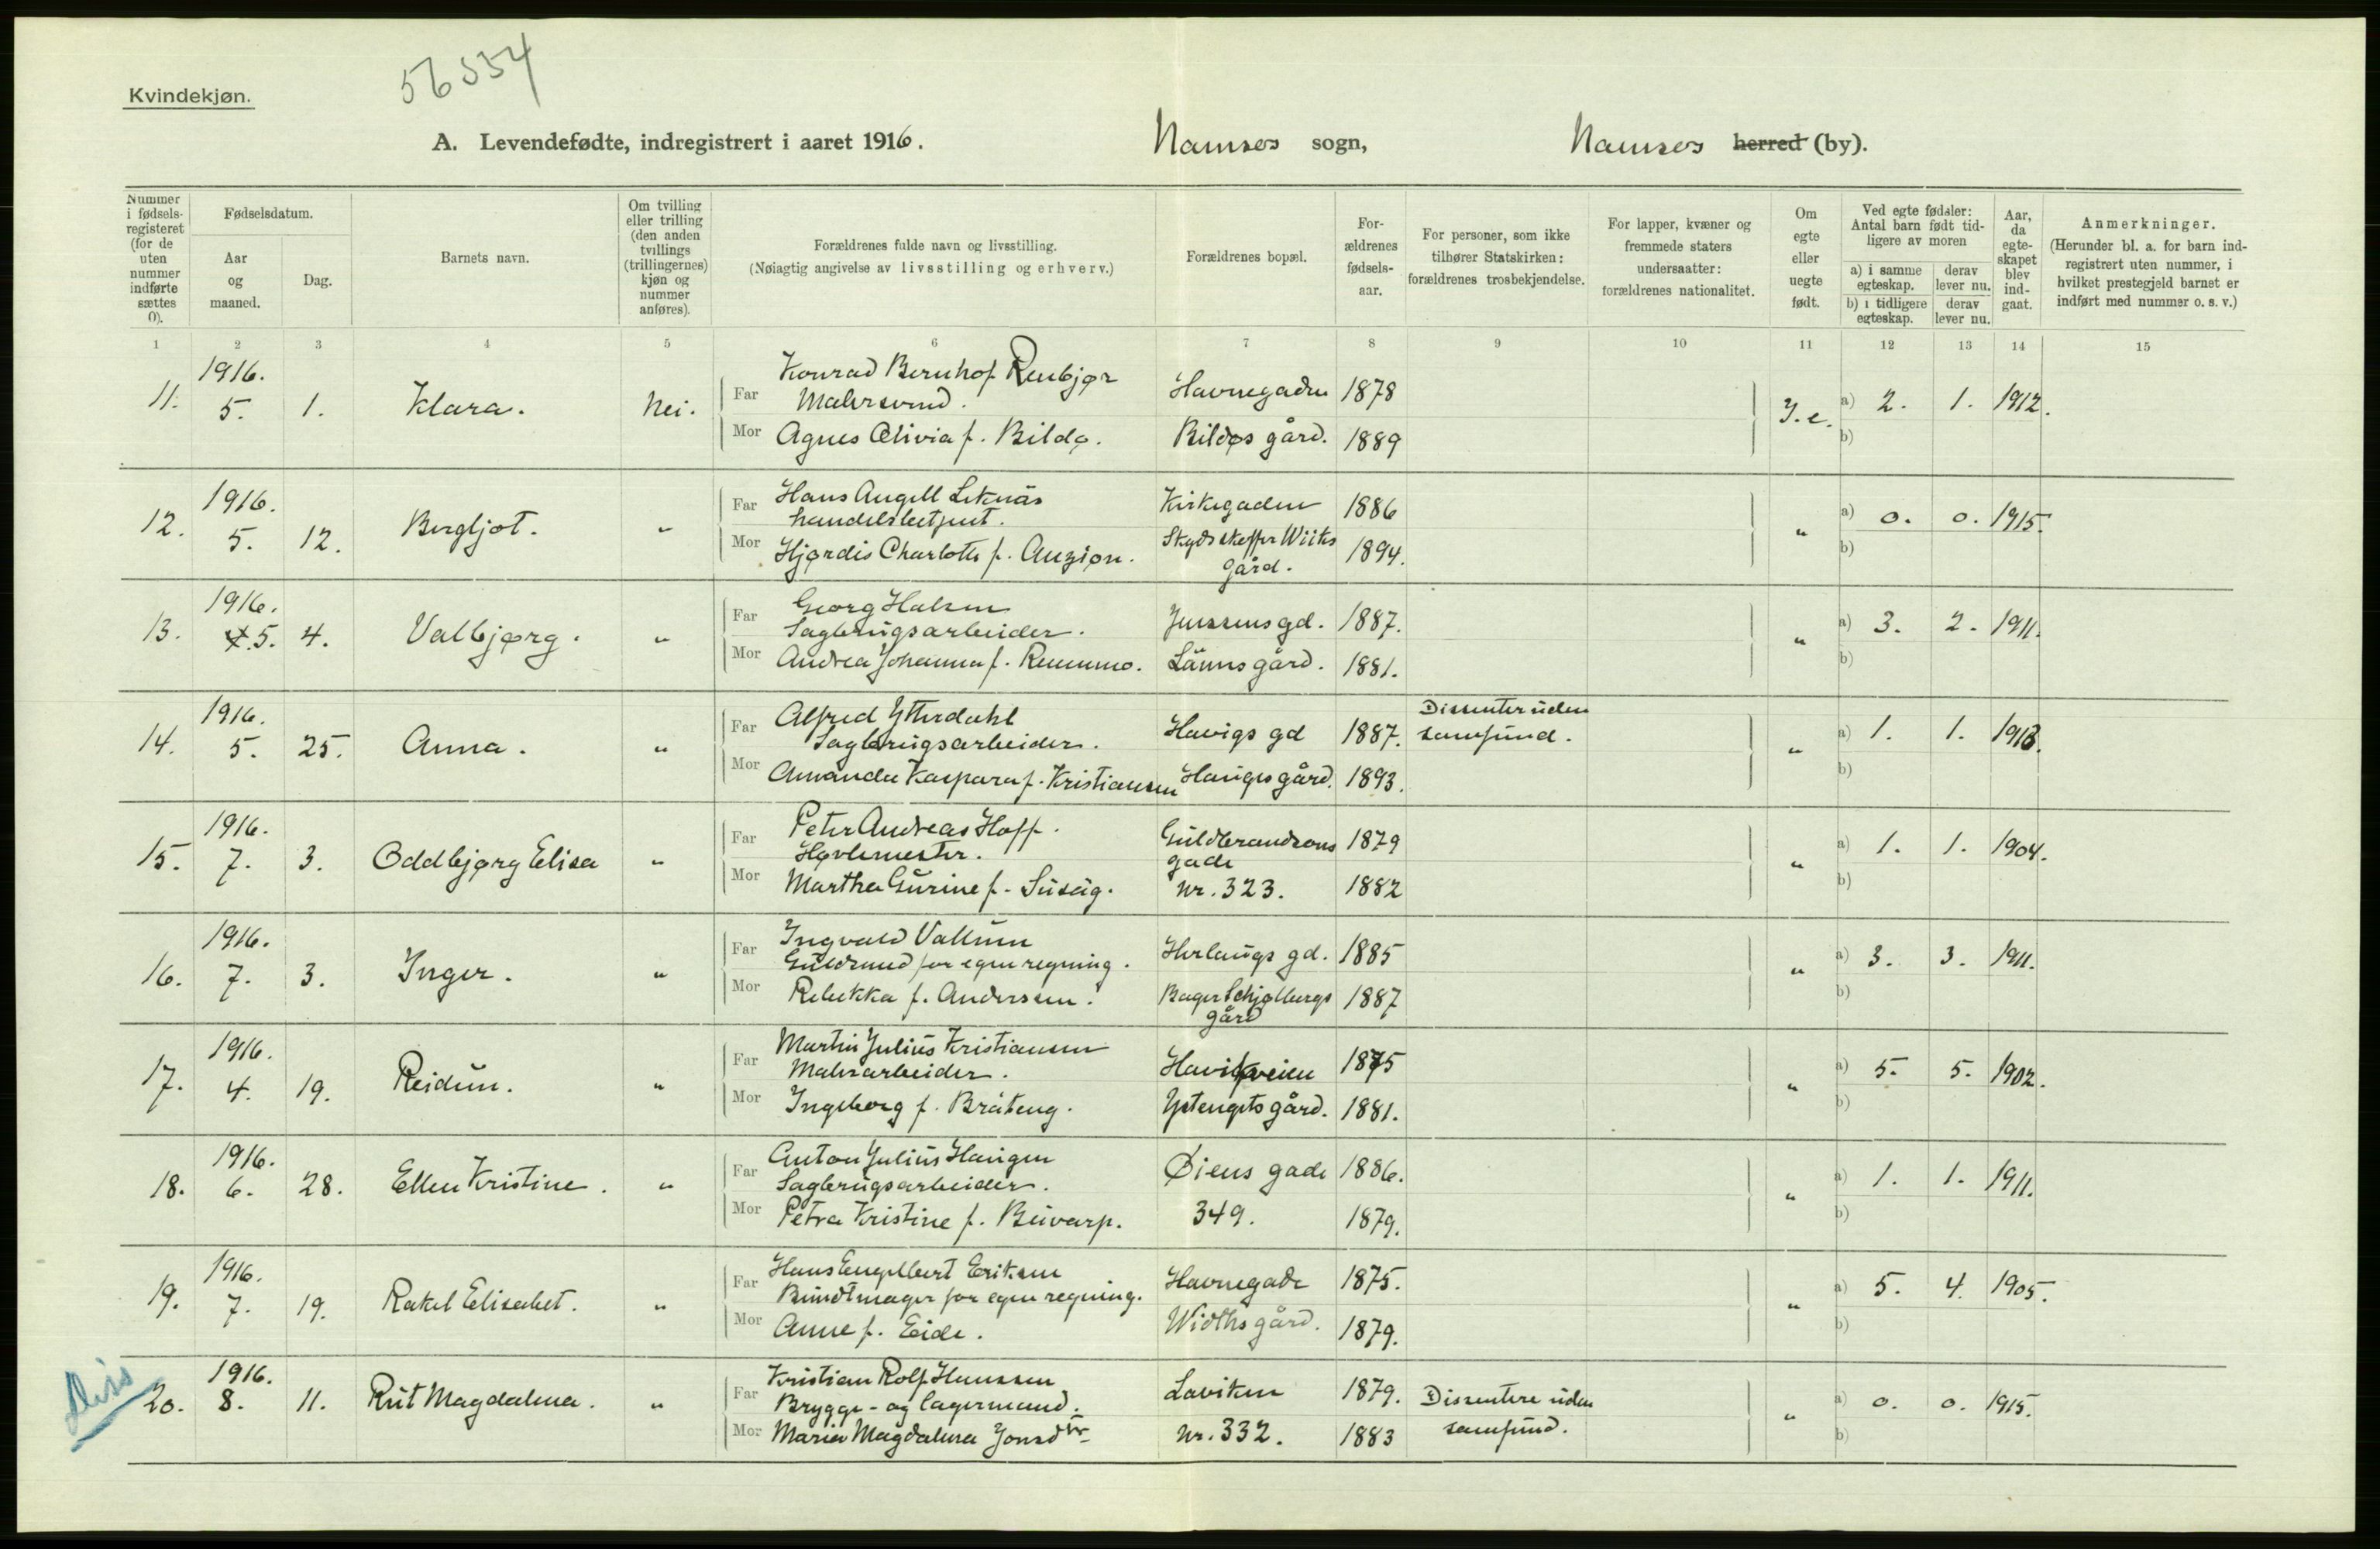 Kvindekjøn.
56554
A. Levendefødte, indregistrert i aaret 1916.
Namsos sogn,
Namsos herred (by).
Nummer i fødsels-registeret (for de uten nummer indførte sættes 0).
Fødselsdatum.
Aar og maaned.
Dag.
Barnets navn.
Om tvilling eller trilling (den anden tvillings (trillingernes) kjøn og nummer anføres).
Forældrenes fulde navn og livsstilling.
(Nøiagtig angivelse av livsstilling og erhverv.)
Forældrenes bopæl.
For-ældrenes fødsels-aar.
For personer, som ikke tilhører Statskirken: forældrenes trosbekjendelse.
For lapper, kvæner og fremmede staters undersaatter: forældrenes nationalitet.
Om egte eller uegte født.
Ved egte fødsler: Antal barn født tid-ligere av moren
a) i samme egteskap. derav lever nu.
b) i tidligere egteskap. derav lever nu.
Aar, da egte-skapet blev ind-gaat.
Anmerkninger.
(Herunder bl. a. for barn ind-registrert uten nummer, i hvilket prestegjeld barnet er indført med nummer o. s. v.)
1 2 3 4 5 6 7 8 9 10 11 12 13 14 15
1916. Konrad Bernhof Renbjør
11. 5. 1. Klara. Nei. Far Malersvend. Havnegaden 1878 I.e. a) 2. 1. 1912.
Mor Agnes Olivia f. Bildø. Bildøs gård. 1889 b)
1916. Far Hans Angell Leknäs Kirkegaden 1886
12. 5. 12. Bergljot. " handelsbetjent. " a) 0. 0. 1915.
Mor Hjørdis Charlotte f. Anzion. Skydsskaffer Wiiks gård. 1894. b)
1916. Far Georg Halsen
13. 5. 4. Valbjørg. " Sagbrugsarbeider. Jenssens gd. 1887. " a) 3. 2. 1911.
Mor Andrea Johanna f. Remmmo. gård. 1881. b)
1916. Far Alfred Ytterdahl Dissenter uden
14. 5. 25. Anna. " Sagbrugsarbeider. Havigs gd 1887. samfund. " a) 1. 1. 1913.
Mor Amanda Kaspara f. Kristiansen Hauges gård. 1893. b)
1916. Far Peter Andreas Hoff. Guldbrandsons 1879
15. 7. 3. Oddbjørg Elisa " Høvlemester. gade " a) 1. 1. 1904.
Mor Martha Gurine f. Susäg. nr. 323. 1882 b)
1916. Far Ingvald Vallum
16. 7. 3. Inger. " Guldsmed for egen regning. Herlaugs gd. 1885 " a) 3. 3. 1911.
Mor Rebekka f. Anderssen. Bager Schjølbergs gård 1887 b)
1916. Far Martin Julius Kristiansen
17. 4. 19. Reidun. " Malerarbeider. Havikveien 1875 " a) 5. 5. 1902.
Mor Ingeborg f. Bråteng. gård. 1881. b)
1916. Far Anton Julius Haugen
18. 6. 28. Ellen Kristine. " Sagbrugsarbeider. Øiens gade 1886. " a) 1. 1. 1911.
Mor Petra Kristine f. Buvarp. 349. 1879. b)
1916. Far Hans Engelbert Eriksen
19. 7. 19. Rakel Elisabet. " Bundtmager for egen regning. Havnegade 1875. " a) 5. 4. 1905.
Mor Anne f. Eide. Widths gård. 1879. b)
Diss 1916. Far Kristian Rolf Hanssen
20. 8. 11. Rut Magdalena. " Brygge- og lagermand. Laviken 1879. Dissentere uden " a) 0. 0. 1915.
Mor Maria Magdalena Jonsdtr nr. 332. 1883 samfund. b)